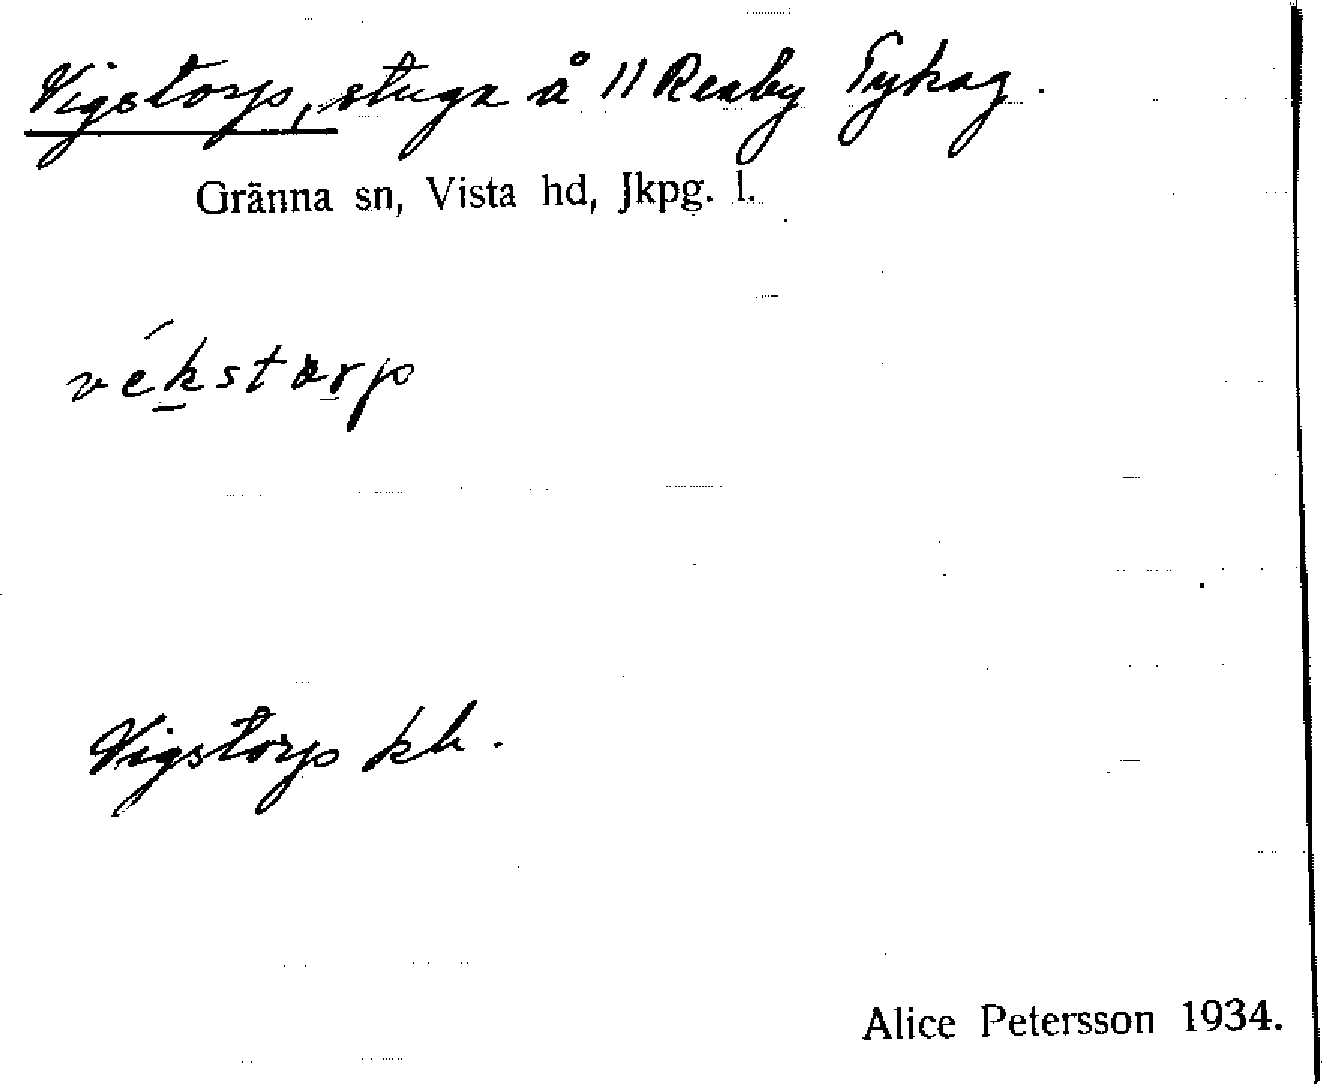 Vigstorp, stuga å 11 Reaby Tykag.
Gränna sn, Vista hd, Jkpg. l.
vékstarp
Vigstorp kb.
Alice Petersson 1934.